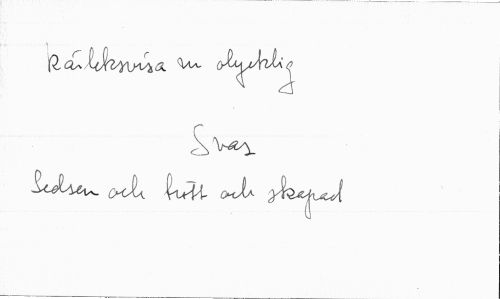 kärleksvisa en olycklig
Svar
Ledsen och trött och skapad